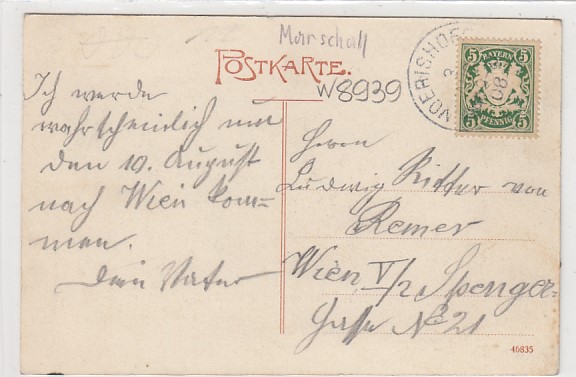 Marschall
POSTKARTE.
W8939
WOERISHOF
08
5 BAYERN 5
5 PFENNIG 5
Ich werde
wahrscheinlich um
den 10. August
nach Wien kom=
men.
Dein Vater
Herrn
Ludwig Ritter von
Remer
Wien V/2 Spenger-
Gasse No 21
46835